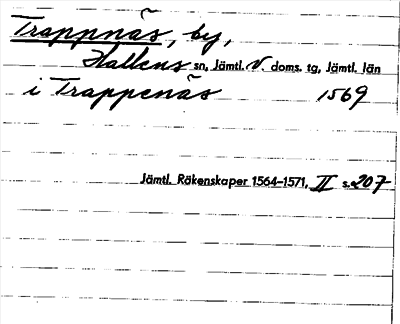 Trappnäs, by,
Hallens sn, Jämtl. V. doms. tg, Jämtl. län
i Trappenäs 1569
Jämtl. Räkenskaper 1564–1571, II s. 207